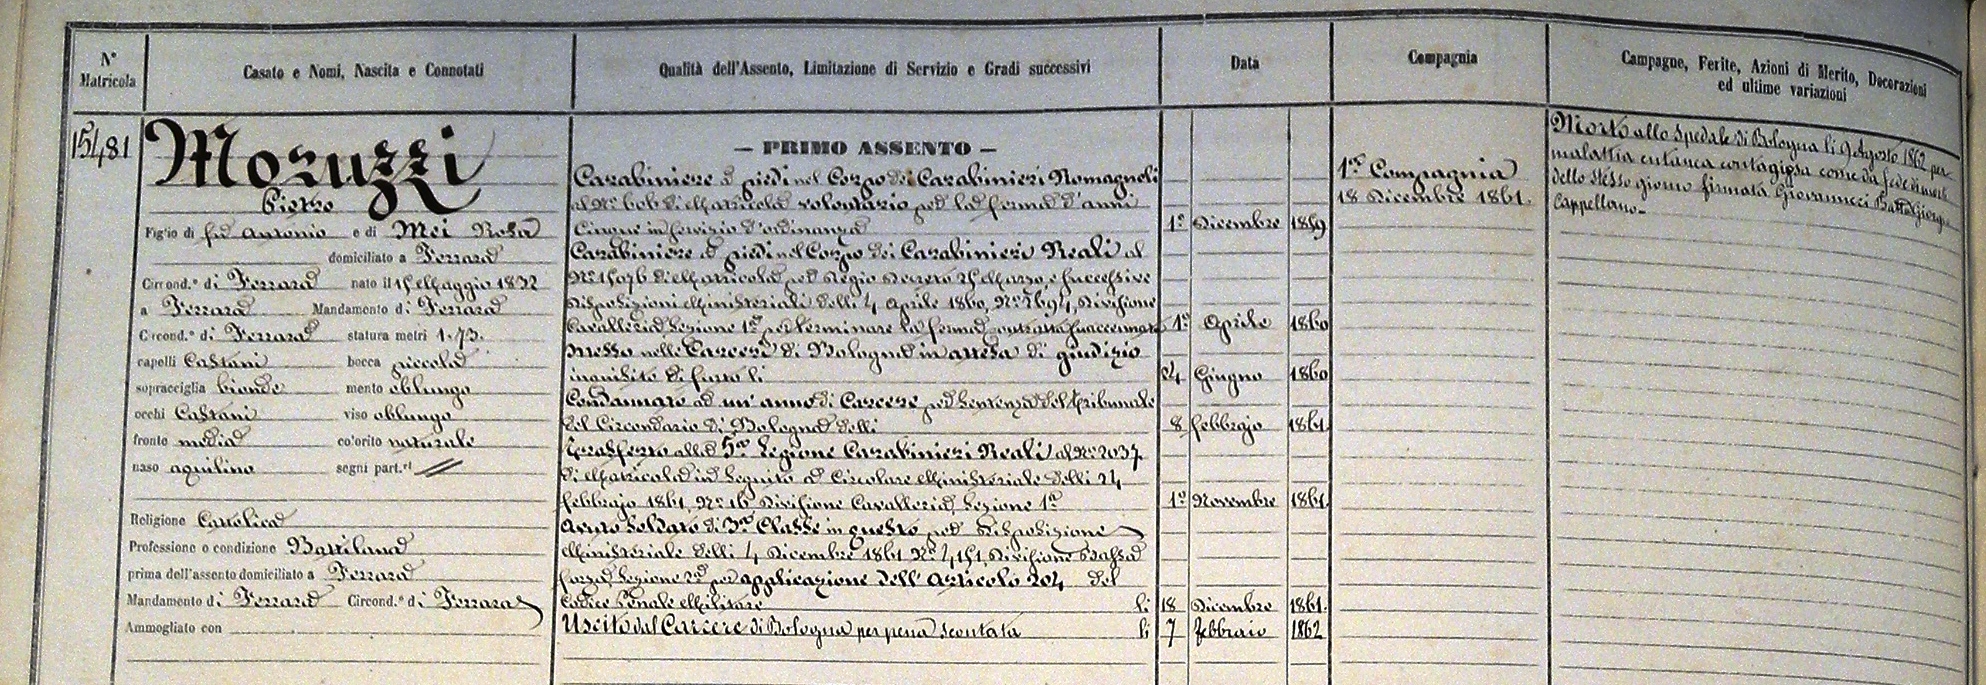 N° Matricola
Casato e Nomi, Nascita e Connotati
Qualità dell'Assento, Limitazione di Servizio e Gradi successivi
Data
Compagnia
Campagne, Ferite, Azioni di Merito, Decorazioni
ed ultime variazioni
15481
Moruzzi
Pietro
Figlio di fu Antonio e di Mei Rosa
domiciliato a Ferrara
Circond.° di Ferrara nato il 15 Maggio 1832
a Ferrara Mandamento di Ferrara
Circond.° di Ferrara statura metri 1.73.
capelli Castani bocca piccola
sopracciglia bionde mento oblungo
occhi Castani viso oblungo
fronte media colorito naturale
naso aquilino segni part.ri
Religione Cattolica
Professione o condizione Battilana
prima dell'assento domiciliato a Ferrara
Mandamento di Ferrara Circond.° di Ferrara
Ammogliato con
— PRIMO ASSENTO —
Carabiniere a piedi nel Corpo dei Carabinieri Romagnoli
al N° 606 di Matricola volontario per la ferma d'anni
Cinque in servizio d'ordinanza 1° Dicembre 1859
Carabiniere a piedi nel Corpo dei Carabinieri Reali al
N° 15076 di Matricola per Regio Decreto 25 Marzo, e successive
Disposizioni Ministeriali delli 4 Aprile 1860, N° 7694, Divisione
Cavalleria Sezione 1ª per terminare la ferma contratta suaccennata 1° Aprile 1860
Messo nelle Carceri di Bologna in attesa di giudizio
inquisito di furto li 24 Giugno 1860
Condannato ad un'anno di Carcere per Sentenza del Tribunale
del Circondario di Bologna delli 8 febbrajo 1861.
Trasferto alla 5ª Legione Carabinieri Reali al N° 2037
di Matricola in seguito a Circolare Ministeriale delli 24
febbrajo 1861, N° 16 Divisione Cavalleria, Sezione 1ª 1° Novembre 1861.
Avuto Soldato di 3ª Classe in questo per Disposizione
Ministeriale delli 4 Dicembre 1861 N° 4151, Divisione Bassa
forza Sezione 2ª per applicazione dell'Articolo 204 del
Codice Penale Militare li 18 Dicembre 1861.
Uscito dal Carcere di Bologna per pena scontata li 7 febbraio 1862
1ª Compagnia
18 Dicembre 1861.
Morto allo Spedale di Bologna li 9 Agosto 1862 per
malattia cutanea contagiosa come da fede di morte
dello stesso giorno firmata Giovannucci Batta Giorgio
Cappellano.